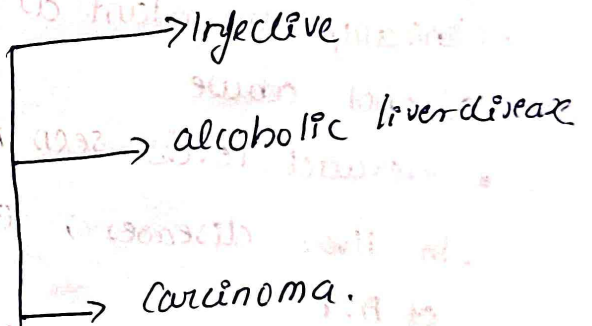 Infective
alcoholic liver disease
Carcinoma.